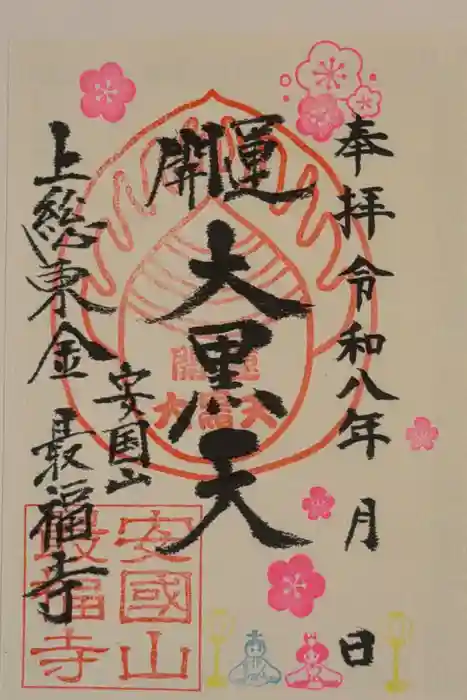 奉拝 令和八年 月 日
開運
大黒天
安国山
上総東金 最福寺
開運
大黒天
安國山
最福寺